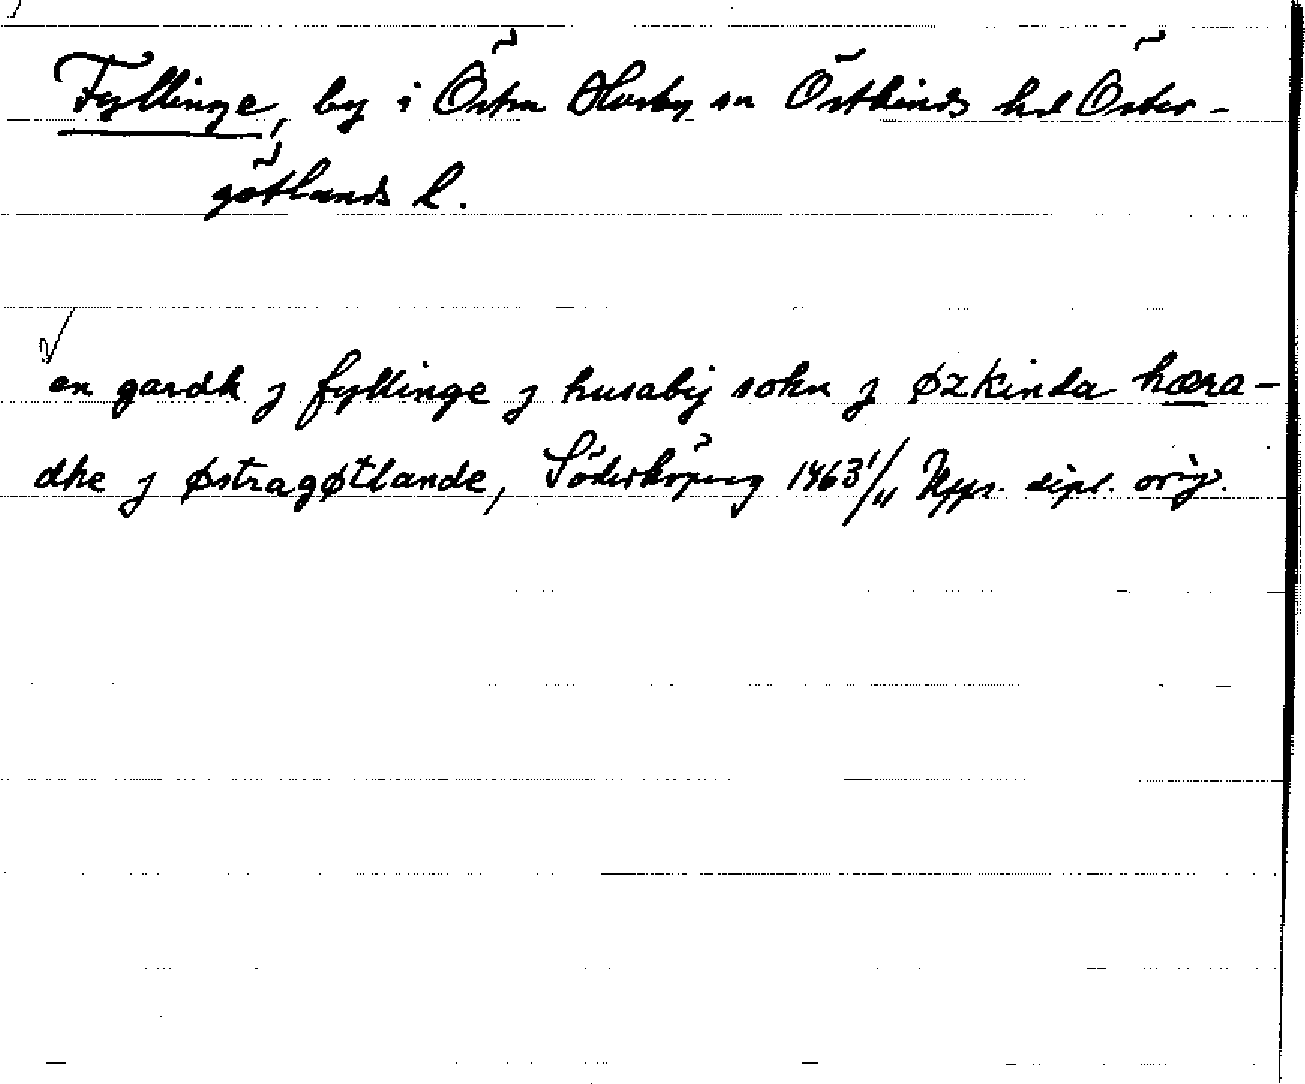 Fyllinge, by i Östra Husby sn Östkinds hd Öster-
götlands l.
en gardh j fyllinge j husabij sokn j øzkinda hæra-
dhe j østragøtlande, Söderköping 1463 1/11 Upps. dipl. orig.